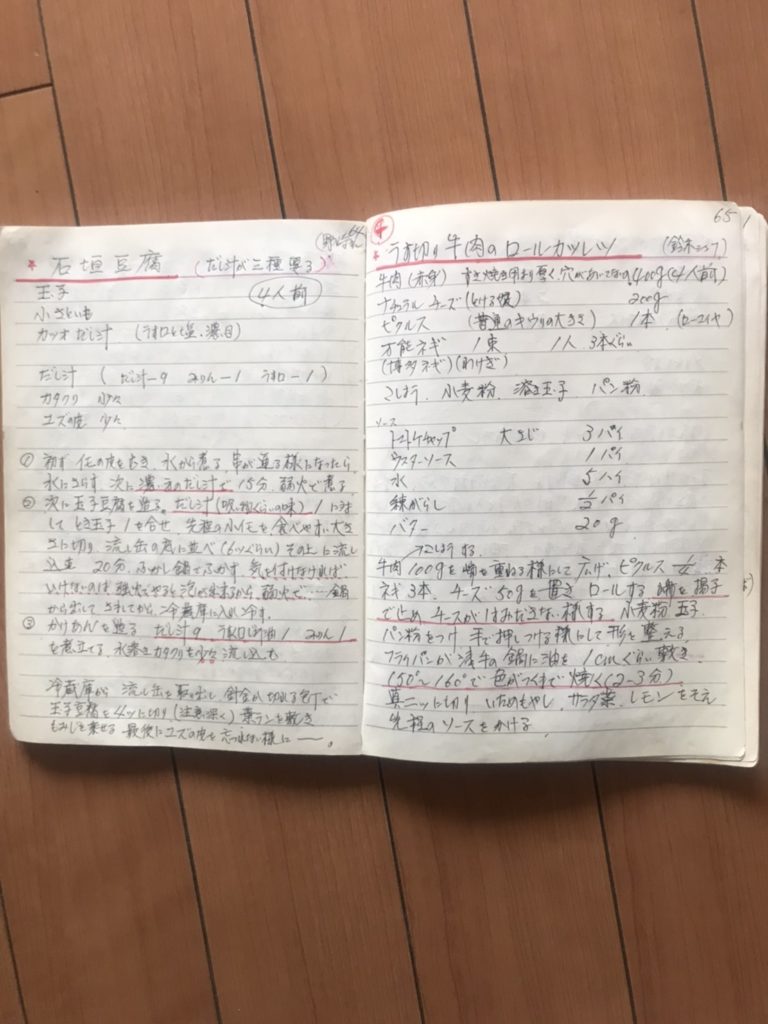 64
* 石垣豆腐 (だし汁が三種要る)
玉子 4人前
小さといも
カツオだし汁 (うす口と塩、濃目)
だし汁 (だし汁-9 みりん-1 うす口-1)
カタクリ 少々
ユズの皮 少々
① 初ず 芋の皮をむき 水から煮る 串が通る様になったら
水にさらす 次に濃目のだし汁で 15分 弱火で煮る
② 次に玉子豆腐を造る。だし汁(吸い物ぐらいの味) 1に対
して とき玉子 1を合せ、先程の小芋を食べやすい大き
さに切り 流し缶の底に並べ(6ッぐらい)その上に流し
込む 20分 ふかし鍋でふかす 気をつけなければ
いけないのは 強火でやると泡が出来るから 弱火で…鍋
から出して さましてから、冷蔵庫に入れ冷す。
③ かけあんを造る だし汁9 うす口しょう油1 みりん1
を煮立てる 水溶きカタクリを少々流し込む
冷蔵庫から 流し缶を取り出し 切れる包丁で
玉子豆腐を4ッに切り(注意深く) 葉ランを敷き
もみじを乗せる 最後にユズの皮を忘れない様に ―。
65
* うす切り牛肉のロールカツレツ (鈴木シェフ)
牛肉(赤身) すき焼き用より厚く、穴があいてないもの 400g(4人前)
ナチュラルチーズ(とける様) 200g
ピクルス (普通のキウリの大きさ) 1本
万能ネギ 1束 1人 3本ぐらい
(博多ネギ)(わけぎ)
こしょう、小麦粉、溶き玉子 パン粉
ソース
トマトケチャップ 大さじ 3パイ
ウスターソース 1パイ
水 5ハイ
練がらし 1/2パイ
バター 20g
こしょうする
牛肉100gを端を重ねる様にして広げ、ピクルス 1/4本
ネギ3本、チーズ50gを置き ロールする 端を楊子
で止め チーズがはみださない様する 小麦粉 玉子
パン粉をつけ 手で押しつける様にして形を整える
フライパンか浅手の鍋に油を 1cmぐらい敷き
150°~160°で色がつくまで焼く(2~3分)
真二ッに切り いためもやし サラダ菜、レモンをそえ
先程のソースをかける